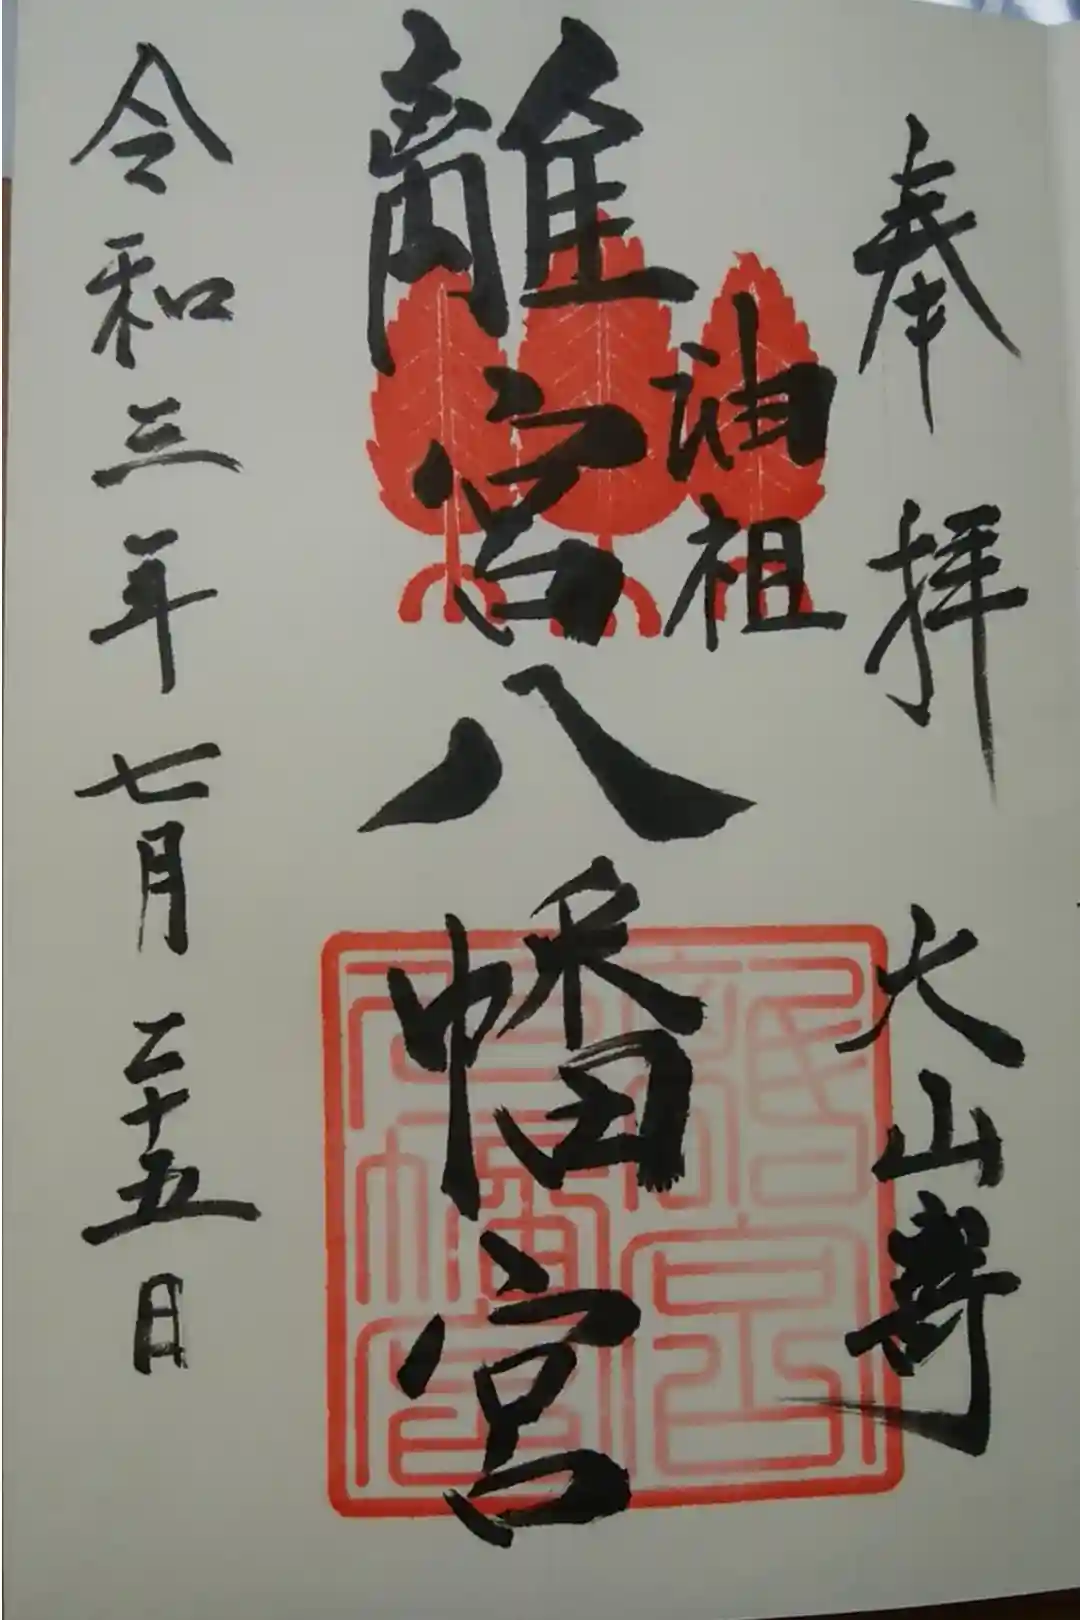 奉拝 大山嵜
油祖
離宮八幡宮
令和三年七月二十五日